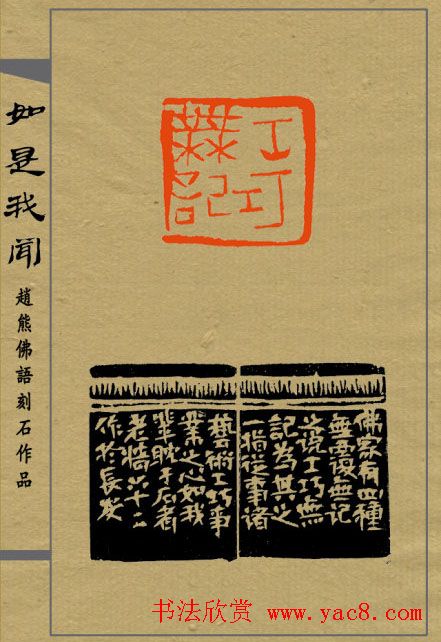 如是我聞
趙熊佛語刻石作品
工巧
無記
佛家有四種
無覆無記
說工巧無
記為其之
一指從事諸
藝術工巧事
業之心如我
輩耽于石者
老牆六十二
作於長安
书法欣赏 www.yac8.com